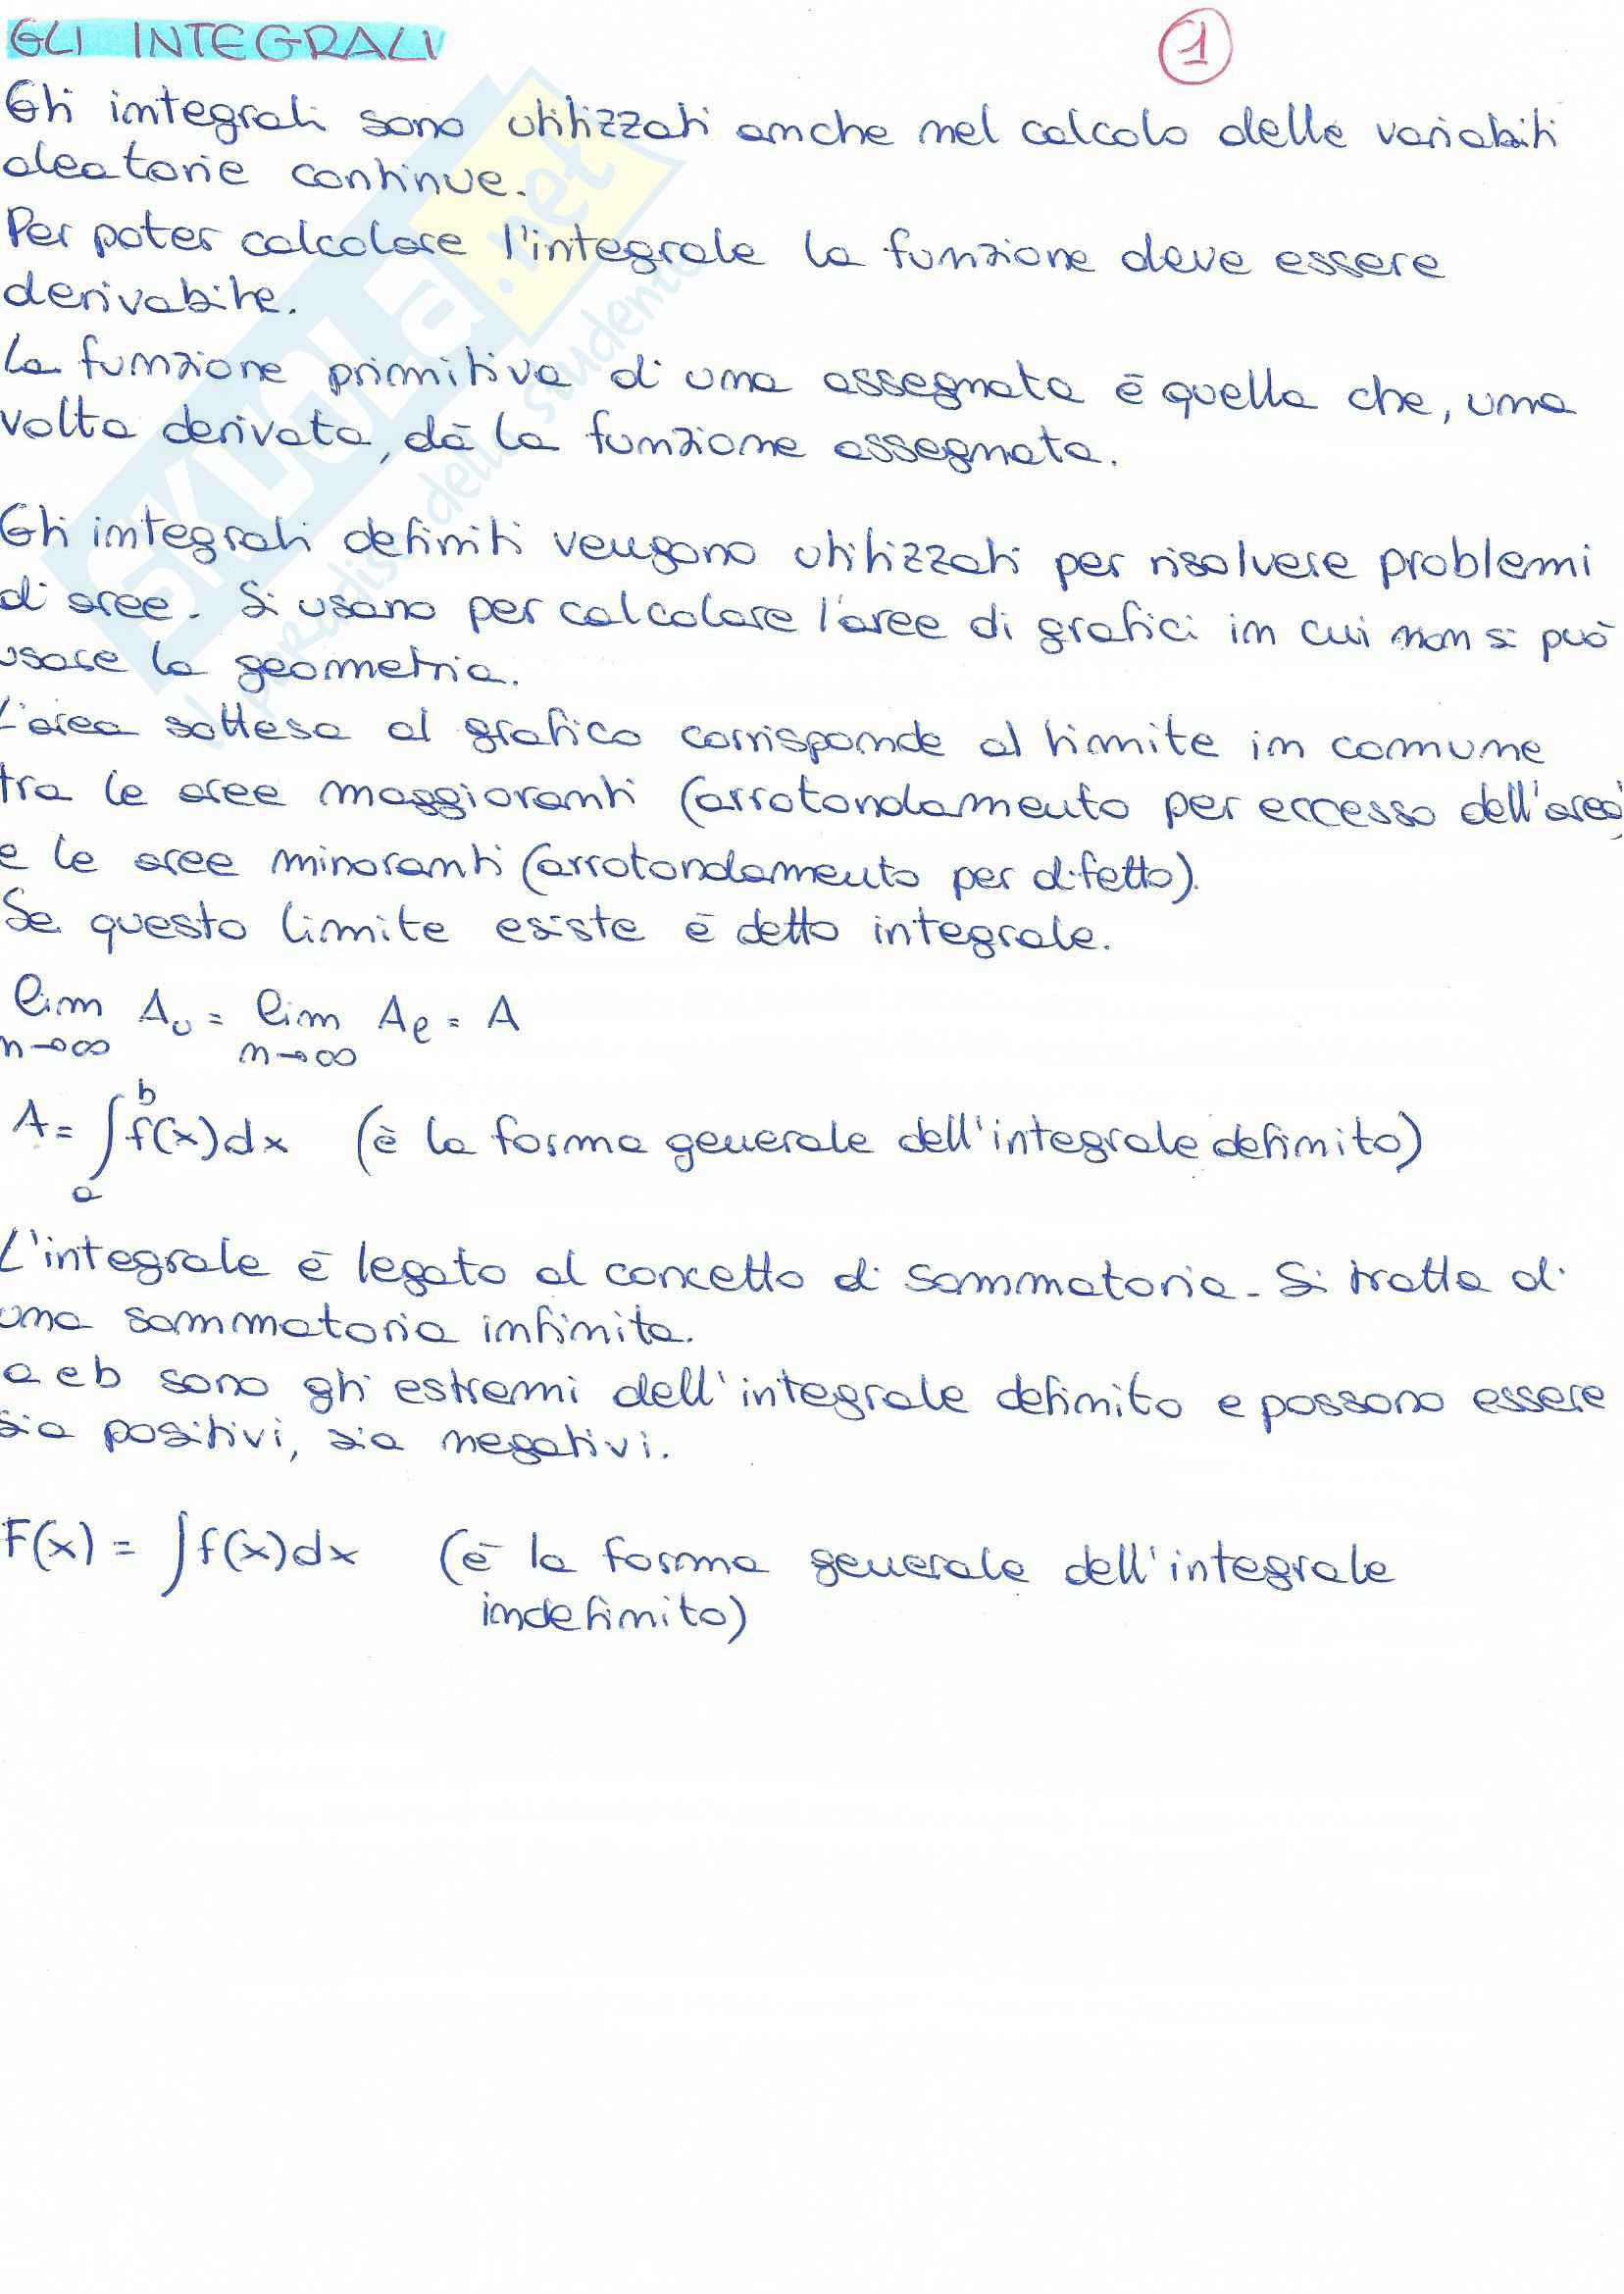 GLI INTEGRALI
1
Gli integrali sono utilizzati anche nel calcolo delle variabili
aleatorie continue.
Per poter calcolare l'integrale la funzione deve essere
derivabile.
La funzione primitiva di una assegnata è quella che, una
volta derivata, dà la funzione assegnata.
Gli integrali definiti vengono utilizzati per risolvere problemi
di aree. Si usano per calcolare l'aree di grafici in cui non si può
usare la geometria.
L'area sottesa al grafico corrisponde al limite in comune
tra le aree maggioranti (arrotondamento per eccesso dell'area)
e le aree minoranti (arrotondamento per difetto).
Se questo limite esiste è detto integrale.
lim A_U = lim A_l = A
n→∞ n→∞
A = ∫_a^b f(x)dx (è la forma generale dell'integrale definito)
L'integrale è legato al concetto di sommatoria. Si tratta di
una sommatoria infinita.
a e b sono gli estremi dell'integrale definito e possono essere
sia positivi, sia negativi.
F(x) = ∫f(x)dx (è la forma generale dell'integrale
indefinito)
SKUOLA.net
il paradiso dello studente